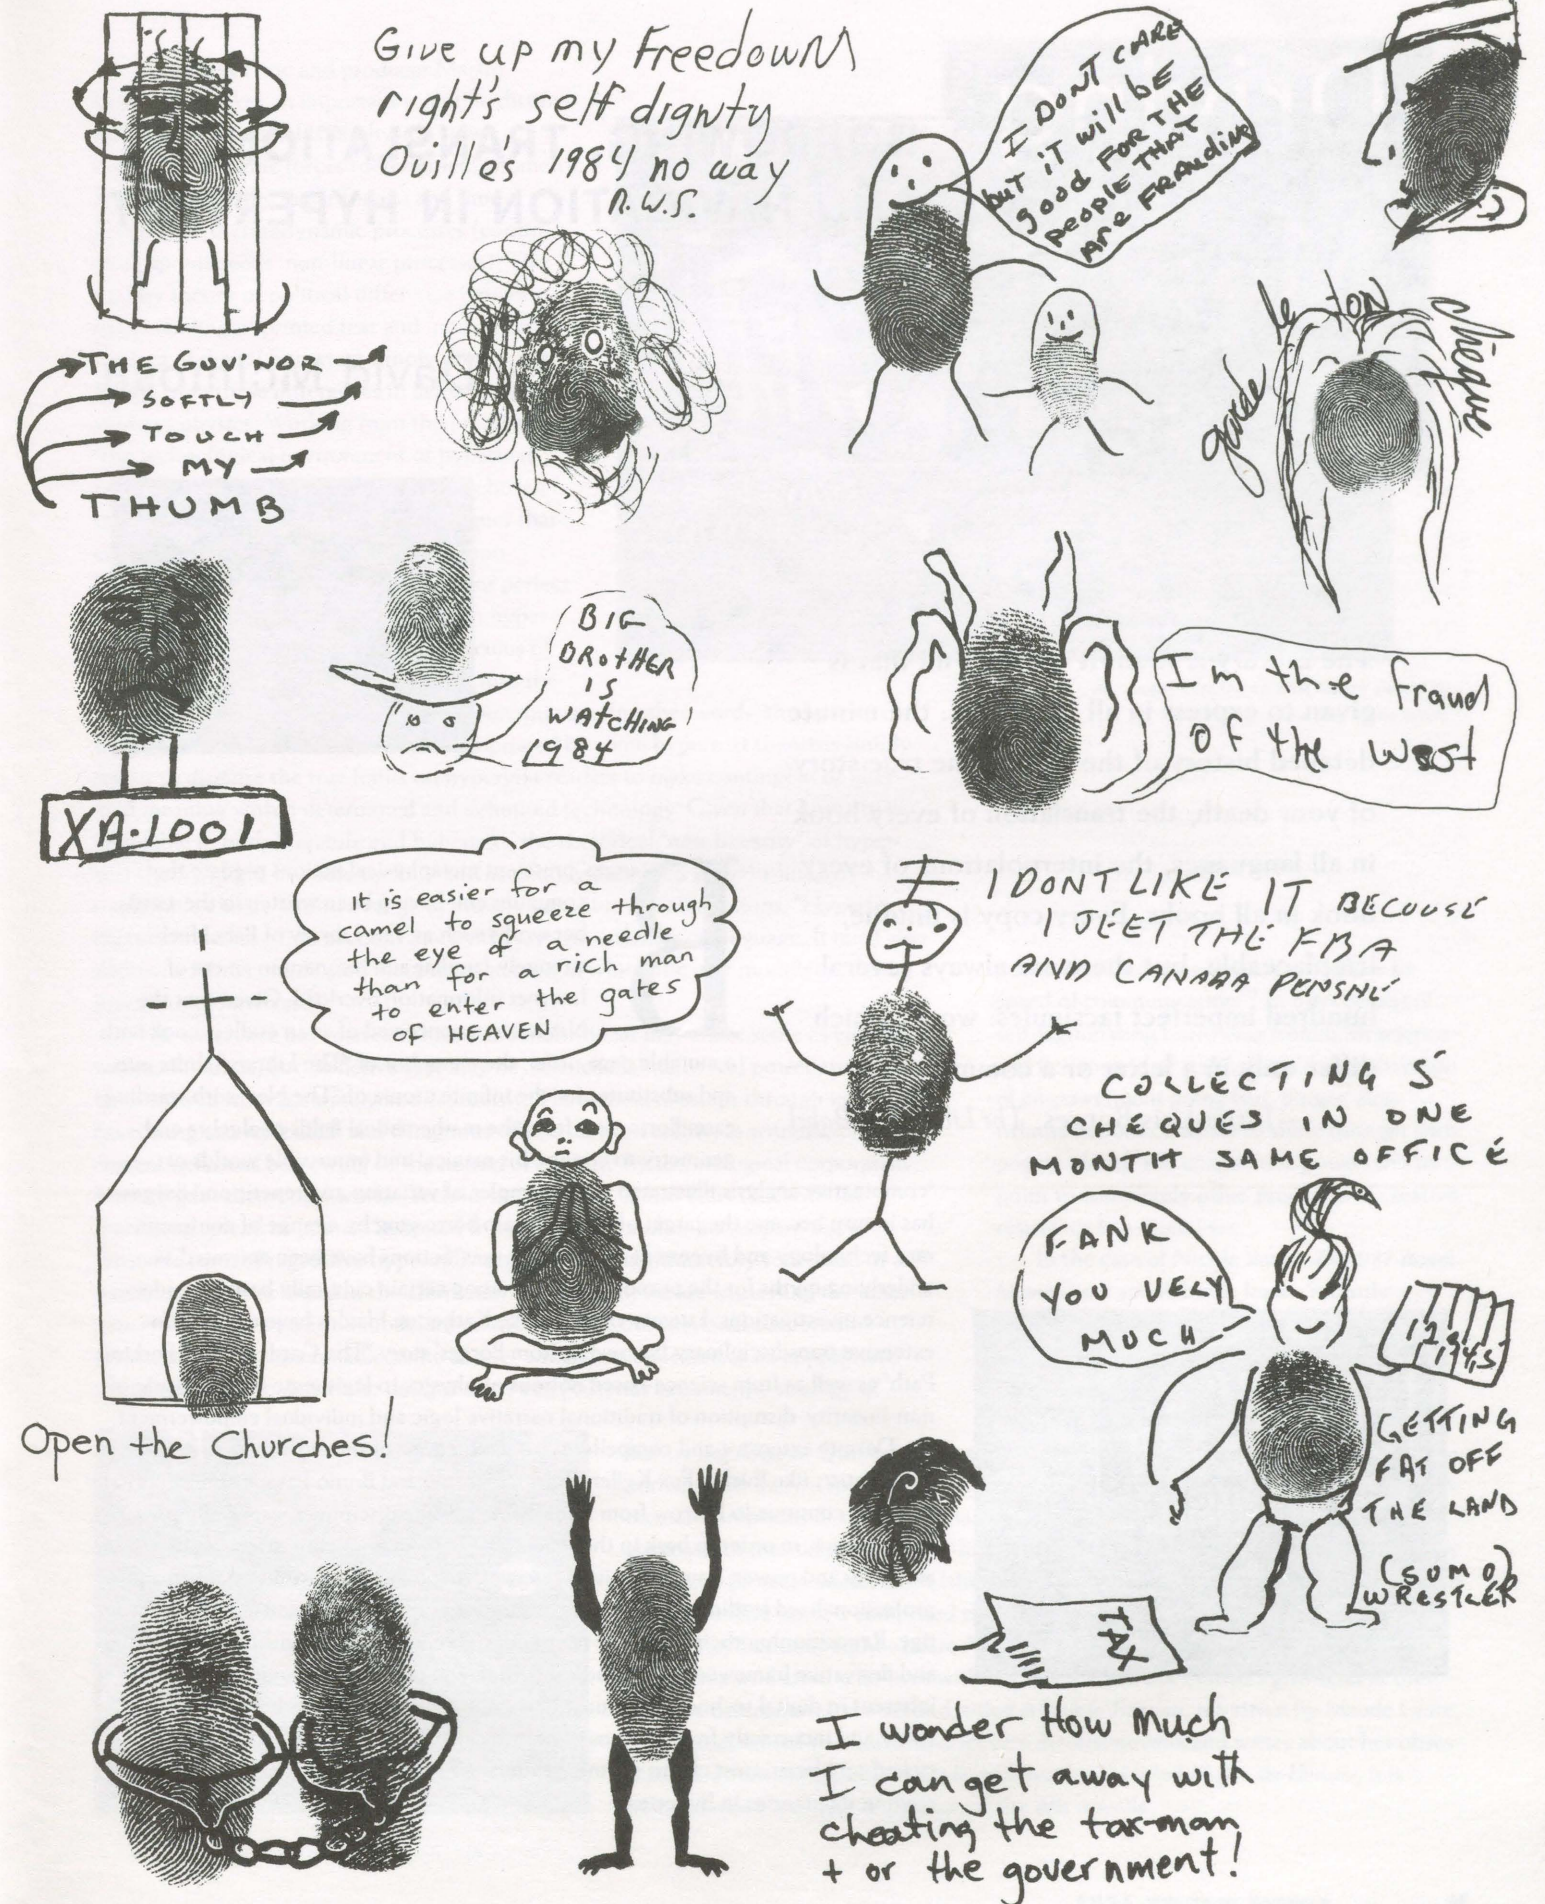 Give up my Freedown
right's self dignity
Ovilles 1984 no way
R.W.S.
I DON'T CARE
but iT will BE
good FOR THE
people THAT
are FRAUDING
garde
le ton
chèque
THE GUV'NOR
SOFTLY
TOUCH
MY
THUMB
BIG
BROTHER
IS
WATCHING
1984
I'm the fraud
of the West
XA·1001
It is easier for a
camel to squeeze through
the eye of a needle
than for a rich man
to enter the gates
of HEAVEN
I DONT LIKE IT BECOUSE
I JEET THE FBA
AND CANADA PENSNE
COLLECTING 5
CHEQUES IN ONE
MONTH SAME OFFICE
FANK
YOU VELY
MUCH
GETTING
FAT OFF
THE LAND
(SUMO)
WRESTLER
Open the Churches!
TAX
I wonder How much
I can get away with
cheating the tax-man
+ or the government!